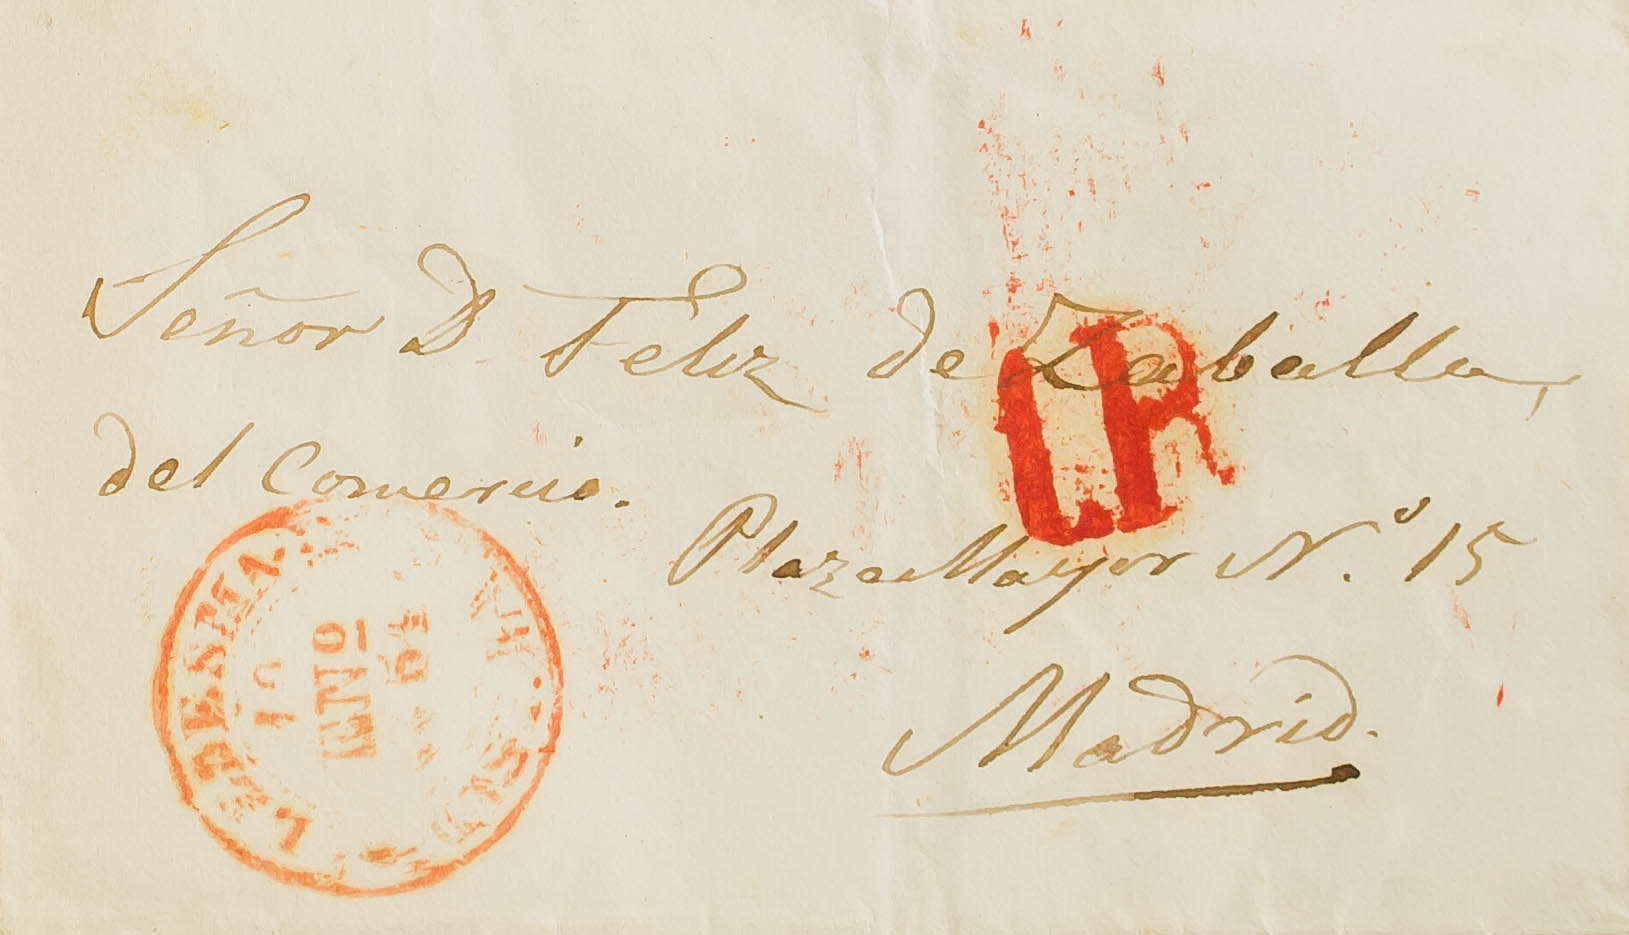 Señor D Feliz de Zaballa,
del Comercio.
Plaza Mayor N.º 15
Madrid.
LEDESMA
ENº